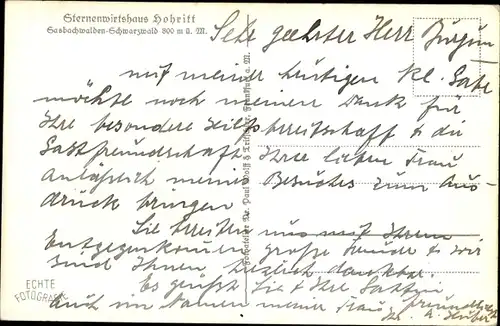 Sternenwirtshaus Hohritt
Sasbachwalden-Schwarzwald 800 m ü. M.
Sehr geehrter Herr
mit meiner heutigen kl. Gabe
möchte noch meinen Dank für
Ihre besondere Hilfsbereitschaft & die
Gastfreundschaft Ihrer lieben Frau
Anläßlich meines Besuches zum Aus-
druck bringen
Sie bereiten uns mit Ihrem
Entgegenkommen große Freude & wir
sind Ihnen herzlich dankbar.
Es grüßt Sie & Ihre Gattin
auch im Namen meiner Frau freundlichst
Huber
Dr. Paul Wolff & Tritschler, Frankfurt a. M.
ECHTE
FOTOGRAFIE